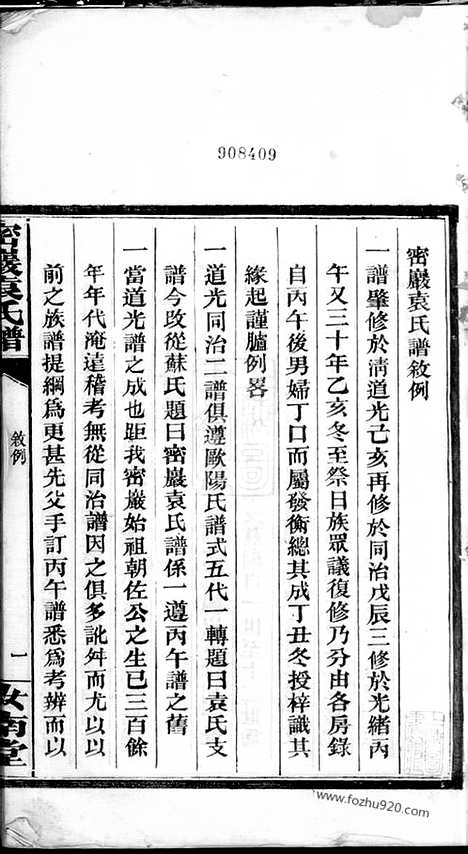 908409
密巖袁氏譜敘例
一譜肇修於淸道光己亥再修於同治戊辰三修於光緒丙
午又三十年乙亥冬至祭日族眾議復修乃分由各房錄
自丙午後男婦丁口而屬發衡總其成丁丑冬授梓識其
緣起謹臚例畧
一道光同治二譜俱遵歐陽氏譜式五代一轉題曰袁氏支
譜今改從蘇氏題曰密巖袁氏譜係一遵丙午譜之舊
一當道光譜之成也距我密巖始祖朝佐公之生已三百餘
年年代淹遠稽考無從同治譜因之俱多訛舛而尤以以
前之族譜提綱爲更甚先父手訂丙午譜悉爲考辨而以
密巖袁氏譜
敘例
一
汝南堂
www.fozhu920.com